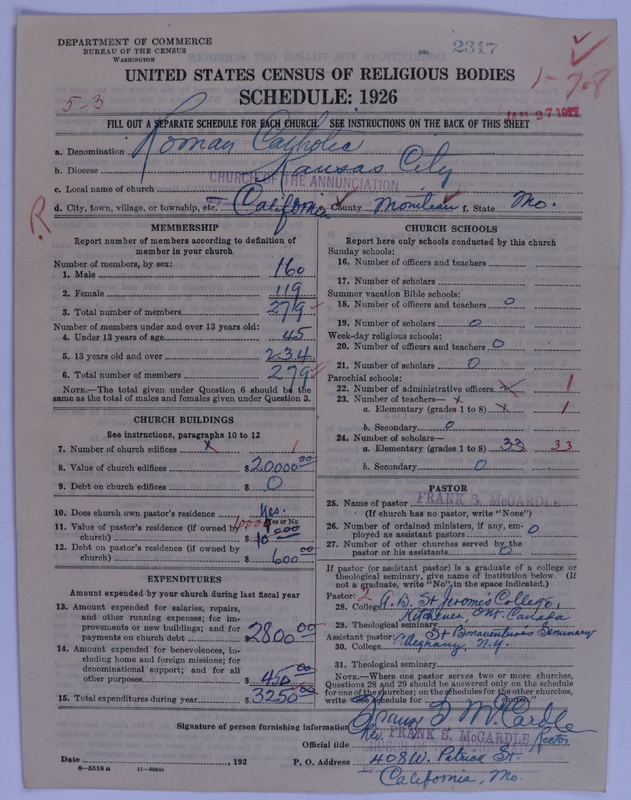 DEPARTMENT OF COMMERCE
BUREAU OF THE CENSUS
WASHINGTON
2317
1-708
UNITED STATES CENSUS OF RELIGIOUS BODIES
5-3
SCHEDULE: 1926
JAN 27 1927
FILL OUT A SEPARATE SCHEDULE FOR EACH CHURCH. SEE INSTRUCTIONS ON THE BACK OF THIS SHEET
a. Denomination Roman Catholic
b. Diocese Kansas City
c. Local name of church CHURCH OF THE ANNUNCIATION
d. City, town, village, or township, etc. California County Moniteau f. State Mo.
R
MEMBERSHIP
Report number of members according to definition of member in your church
Number of members, by sex:
1. Male 160
2. Female 119
3. Total number of members 279
Number of members under and over 13 years old:
4. Under 13 years of age 45
5. 13 years old and over 234
6. Total number of members 279
NOTE.—The total given under Question 6 should be the
same as the total of males and females given under Question 3.
CHURCH BUILDINGS
See instructions, paragraphs 10 to 12
7. Number of church edifices x 1
8. Value of church edifices $20000 00
9. Debt on church edifices $0
10. Does church own pastor's residence Yes.
Yes or No
11. Value of pastor's residence (if owned by
church) $ 10000
12. Debt on pastor's residence (if owned by
church) $ 600 00
EXPENDITURES
Amount expended by your church during last fiscal year
13. Amount expended for salaries, repairs,
and other running expenses; for im-
provements or new buildings; and for
payments on church debt $2800 00
14. Amount expended for benevolences, in-
cluding home and foreign missions; for
denominational support; and for all
other purposes $ 450 00
15. Total expenditures during year $3250 00
CHURCH SCHOOLS
Report here only schools conducted by this church
Sunday schools:
16. Number of officers and teachers
17. Number of scholars
Summer vacation Bible schools:
18. Number of officers and teachers 0
19. Number of scholars 0
Week-day religious schools:
20. Number of officers and teachers 0
21. Number of scholars 0
Parochial schools:
22. Number of administrative officers x 1
23. Number of teachers— x
a. Elementary (grades 1 to 8) x 1
b. Secondary 0
24. Number of scholars—
a. Elementary (grades 1 to 8) 33 33
b. Secondary 0
PASTOR
25. Name of pastor FRANK S. McCARDLE
(If church has no pastor, write "None")
26. Number of ordained ministers, if any, em-
ployed as assistant pastors 0
27. Number of other churches served by the
pastor or his assistants 0
If pastor (or assistant pastor) is a graduate of a college or
theological seminary, give name of institution below. (If
not a graduate, write "No" in the space indicated.)
Pastor: 2
28. College A.B. St Jerome's College
Kitchener, Ont. Canada
29. Theological seminary St Bonaventure's Seminary
Assistant pastor:
30. College Allegany, N.Y.
31. Theological seminary
NOTE.—Where one pastor serves two or more churches,
Questions 28 and 29 should be answered only on the schedule
for one of the churches; on the schedules for the other churches,
write "See schedule for church."
Signature of person furnishing information
Official title Rev. FRANK S. McCARDLE Rector
Date , 192 P. O. Address 408 W. Patrick St.
8—5518a 11—9055c
California, Mo.